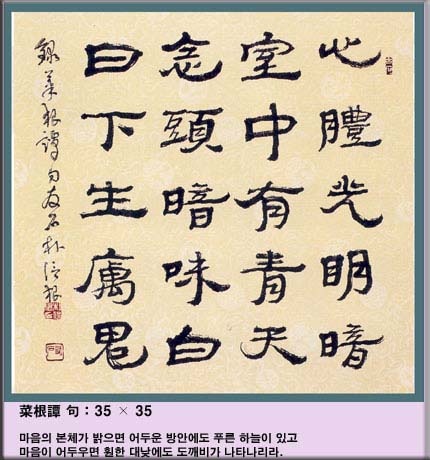 心體光明暗
室中有青天
念頭暗味白
日下生厲鬼
錄菜根譚句友石朴信根
菜根譚 句 : 35 × 35
마음의 본체가 밝으면 어두운 방안에도 푸른 하늘이 있고
마음이 어두우면 훤한 대낮에도 도깨비가 나타나리라.